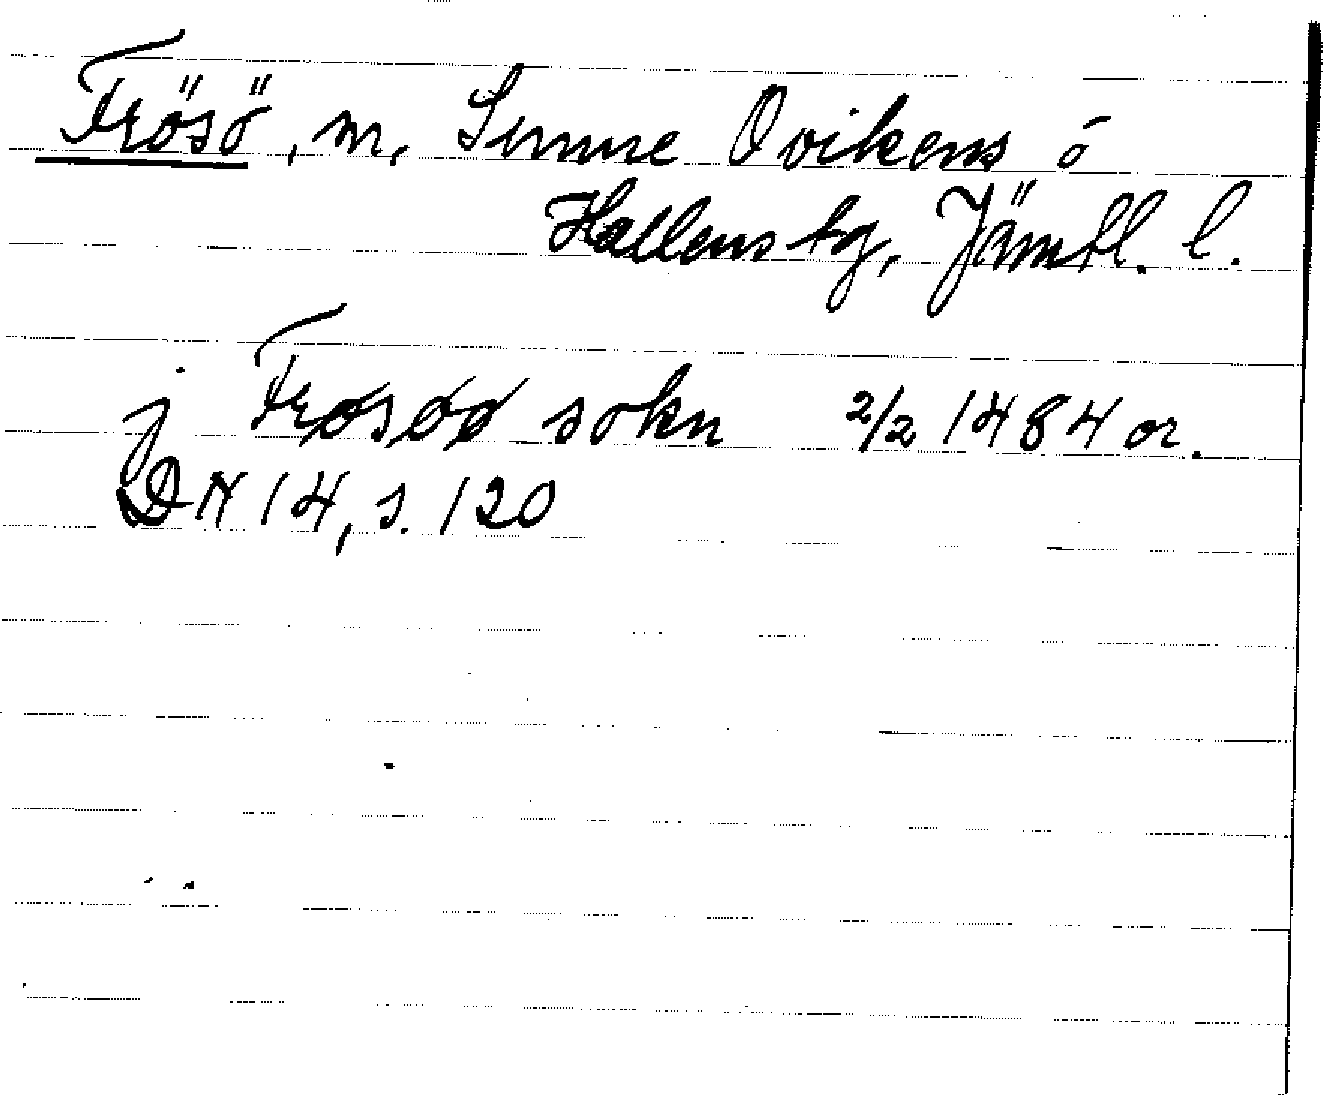 Frösö, m. Sunne Ovikens o
Hallens tg, Jämtl. l.
j Frøsøø sokn 2/2 1484 or.
DN 14, s. 120